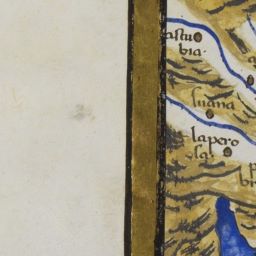 astu
bia
suana
lapero
sa
p
br